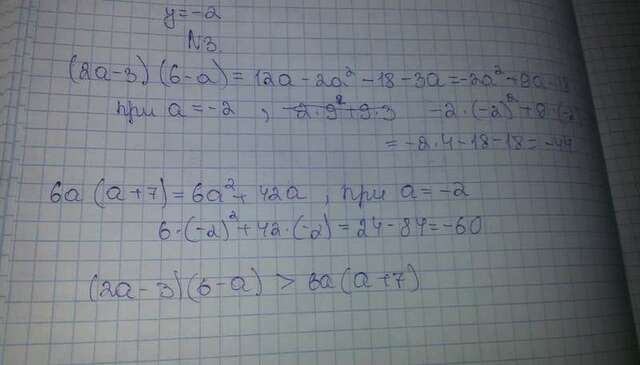 y = -2
N3.
(2a-3)(6-a) = 12a - 2a² - 18 - 3a = -2a² + 9a - 18
при a = -2 , -2·9² + 9·3 -2·(-2)² + 9·(-2)
= -2·4 - 18 - 18 = -44
6a (a+7) = 6a² + 42a , при a = -2
6·(-2)² + 42·(-2) = 24 - 84 = -60
(2a-3)(6-a) > 6a(a+7)